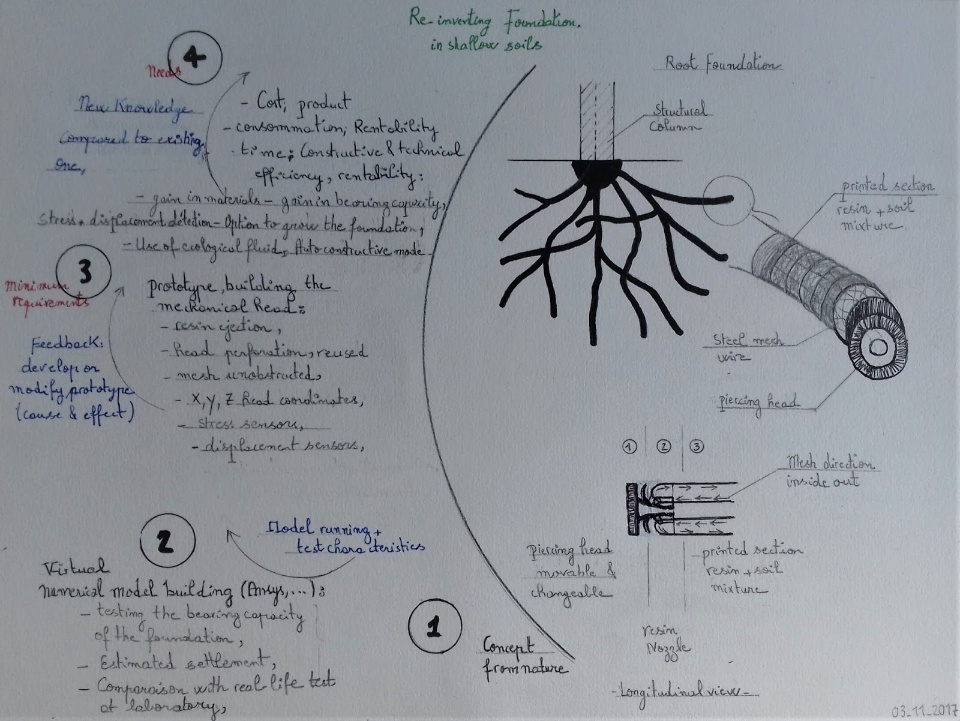 Re-inverting Foundation.
in shallow soils
4
Needs
New Knowledge
Compared to existing
one,
- Cost, product
- consommation, Rentability
- time; Constructive & technical
efficiency, rentability:
- gain in materials - gain in bearing capacity,
Stress & displacement detection - Option to grow the foundation,
- Use of ecological fluid, Auto constructive mode.
3
Minimum
requirements
Feedback:
develop or
modify prototype
(cause & effect)
prototype, building the
mechanical head:
- resin ejection,
- head perforation, reused
- mesh unobstructed,
- X, Y, Z head coordinates,
- stress sensors,
- displacement sensors,
2
Model running +
test characteristics
Virtual
Numerical model building (Ansys,...):
- testing the bearing capacity
of the foundation,
- Estimated settlement,
- Comparaison with real life test
at laboratory,
1
Concept
from nature
Root Foundation
Structural
Column
printed section
resin + soil
mixture
Steel mesh
wire
Piercing head
1 2 3
Mesh direction
inside out
Piercing head
movable &
changeable
printed section
resin + soil
mixture
resin
Nozzle
- Longitudinal view -
03_11_2017